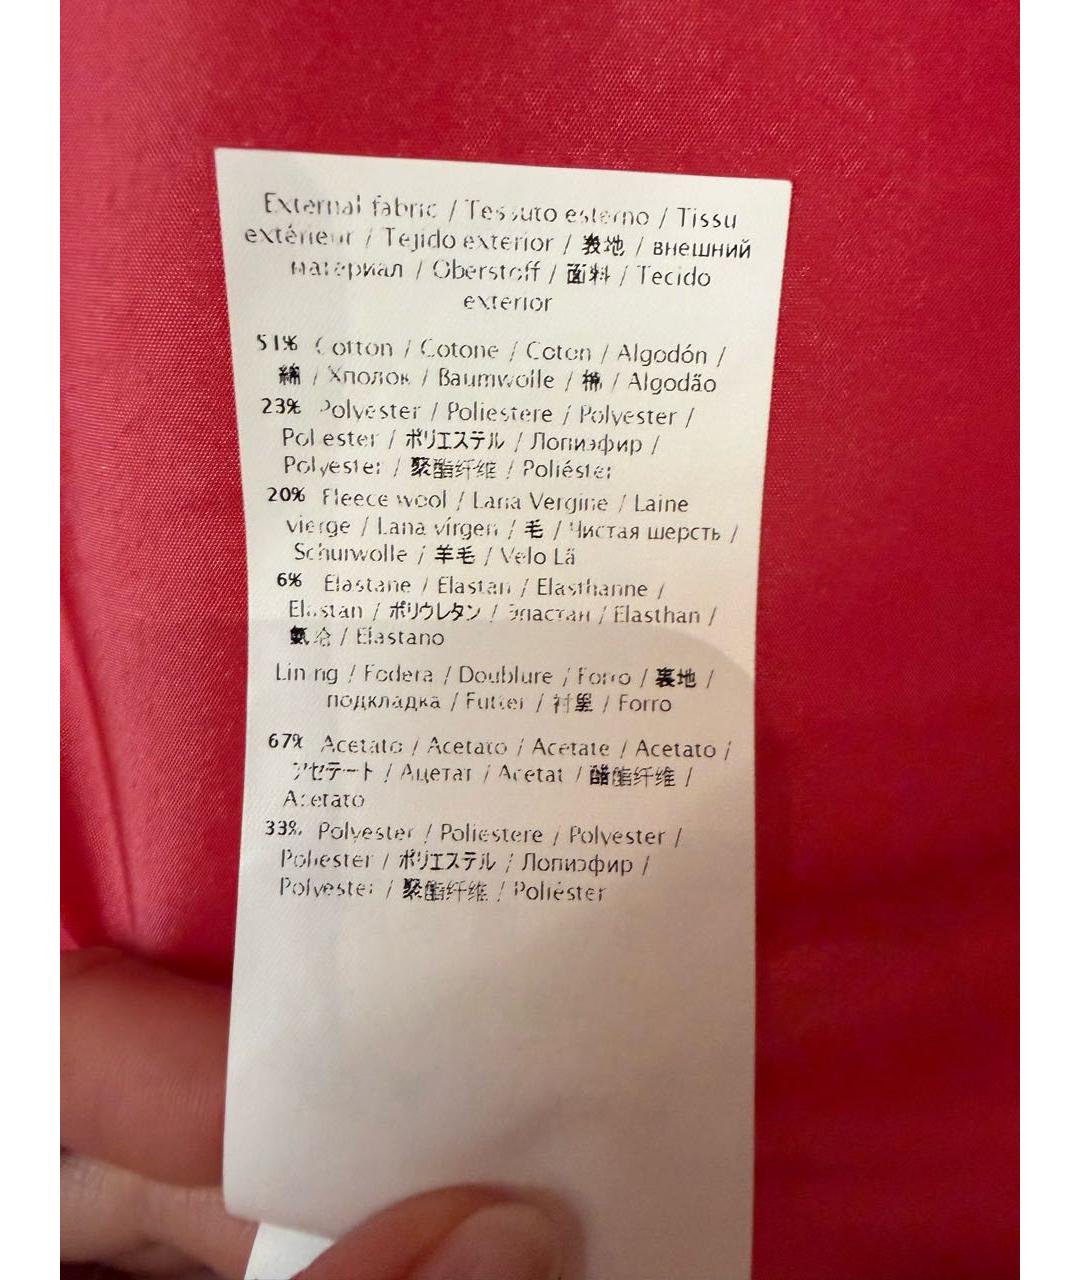 External fabric / Tessuto esterno / Tissu
extérieur / Tejido exterior / 表地 / внешний
материал / Oberstoff / 面料 / Tecido
exterior
51% Cotton / Cotone / Coton / Algodón /
綿 / Хполок / Baumwolle / 棉 / Algodão
23% Polyester / Poliestere / Polyester /
Poliester / ポリエステル / Лопиэфир /
Polyester / 聚酯纤维 / Poliéster
20% Fleece wool / Lana Vergine / Laine
vierge / Lana virgen / 毛 / Чистая шерсть /
Schurwolle / 羊毛 / Velo Lã
6% Elastane / Elastan / Elasthanne /
Elastan / ポリウレタン / Эластан / Elasthan /
氨纶 / Elastano
Lining / Fodera / Doublure / Forro / 裏地 /
подкладка / Futter / 衬里 / Forro
67% Acetato / Acetato / Acetate / Acetato /
アセテート / Ацетат / Acetat / 醋酯纤维 /
Acetato
33% Polyester / Poliestere / Polyester /
Poliester / ポリエステル / Лопиэфир /
Polyester / 聚酯纤维 / Poliéster